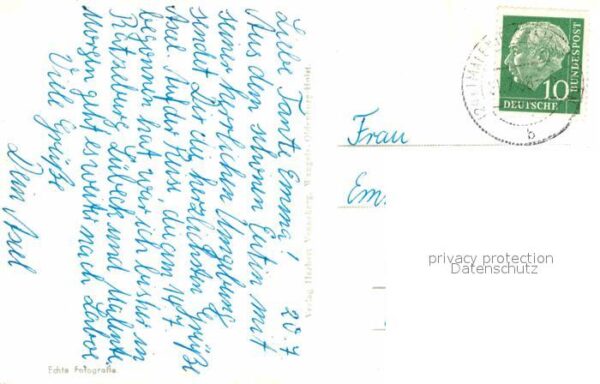 20.7
Liebe Tante Emmy!
Aus dem schönen Eutin mit
seiner herrlichen Umgebung
sendet Dir die herzlichsten Grüße
Axel. Auf der Reise, die am 16.7
begonnen hat, war ich bisher in
Ratzeburg, Lübeck und Malente.
Morgen geht es weiter nach Laboe
Viele Grüße
Dein Axel
Echte Fotografie
Verlag Herbert
Frau
Em
DEUTSCHE
BUNDESPOST
10
b
privacy protection
Datenschutz